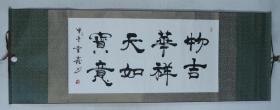 物華天寶
吉祥如意